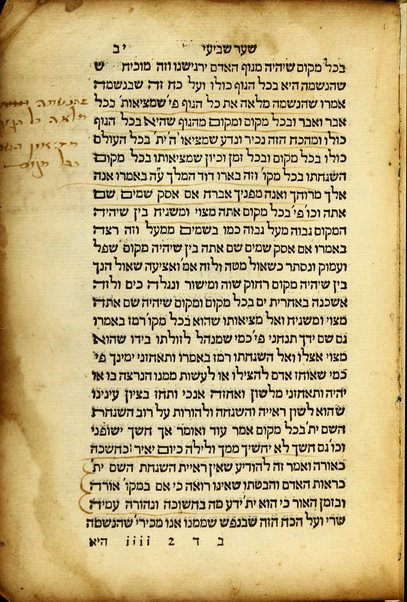 שער שביעי יב
בכל מקום שיהיה מגוף האדם ירגישנו וזה מוכיח ש
שהנשמה היא בכל הגוף כולו ועל כח זה שבנשמה
אמרו שהנשמה מלאה את כל הגוף פי׳ שמציאות׳ בכל
אבר ואבר ובכל מקום ומקום מהגוף שהיא בכל הגוף
כולו ומהכח הזה נכיר ונדע שמציאו׳ ה׳ ית׳ בכל העולם
כולו ובכל מקום ובכל זמן וכיון שמציאותו בכל מקום
השגחתו בכל מקו׳ וזה בארו דוד המלך ע״ה באמרו אנה
אלך מרוחך ואנה מפניך אברח אם אסק שמים שם
אתה וכו׳ פי׳ בכל מקום אתה מצוי ומשגיח בין שיהיה
המקום גבוה מעל גבוה כמו בשמים ממעל וזה רצה
באמרו אם אסק שמים שם אתה בין שיהיה המקום שפל
ועמוק ונסתר כשאול מטה ולזה אמ׳ ואציעה שאול הנך
בין שיהיה מקום רחוק שוה ומישור ונגלה כים ולזה
אשכנה באחרית ים בכל מקום ומקום שיהיה שם אתה
מצוי ומשגיח ואל מציאותו שהוא בכל מקו׳ רמז באמרו
גם שם ידך תנחני פי׳ כמי שמנהל לזולתו בידו שהוא
מצוי אצלו ואל השגחתו רמז באמרו ותאחזני ימינך פי׳
כמי שאוחז אדם להצילו או לעשות ממנו הנרצה בו או
יהיה ותאחזני מלשון ואחוזה אנכי ותחז בציון עינינו
שהוא לשון ראייה והשגחה ולהורות על רוב השגחת
השם ית׳ בכל מקום אמר עוד ואומר אך חשך ישופני
וכו׳ גם חשך לא יחשיך ממך ולילה כיום יאיר כחשכה
כאורה ואמר זה להודיע שאין ראיית השגחת השם ית׳
כראות האדם והבטתו שאינו רואה כי אם במקו׳ אורה
ובזמן האור כי הוא ית׳ ידע מה בחשוכה ונהורה עמיה
שרי ועל הכח הזה שבנפש שממנו אנו מכירי׳ שהנשמה
ב ד 2 iiii היא
שהנשמה
מלאה כל הגוף